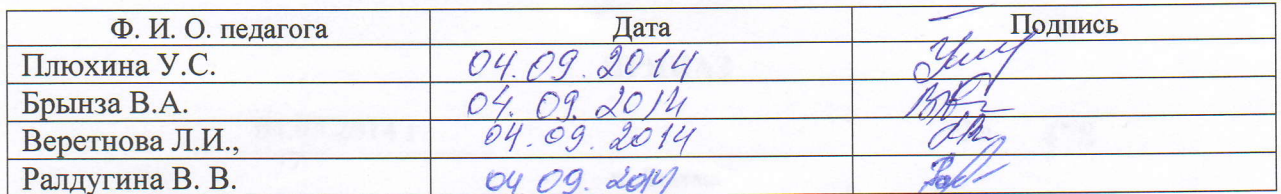 Ф. И. О. педагога Дата Подпись
Плюхина У.С. 04.09.2014
Брынза В.А. 04.09.2014
Веретнова Л.И., 04.09.2014
Ралдугина В. В. 04 09. 2014